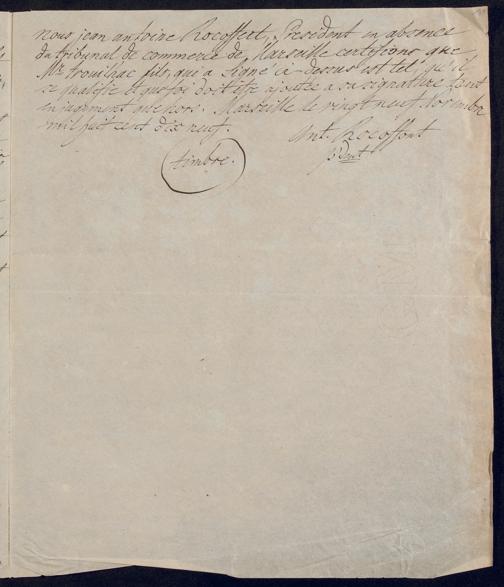 nous jean antoine Rocoffort, President en absence
du tribunal de commerce de Marseille certifions que
Mr. trouilhac fils, qui a signé ci-dessus est tel, qu'il
se qualifie et que foi doit être ajoutée a sa signature tant
en jugement que hors. Marseille le vingt neuf novembre
mil huit cent dix neuf.
Ant. Rocoffort
pdent
timbre.